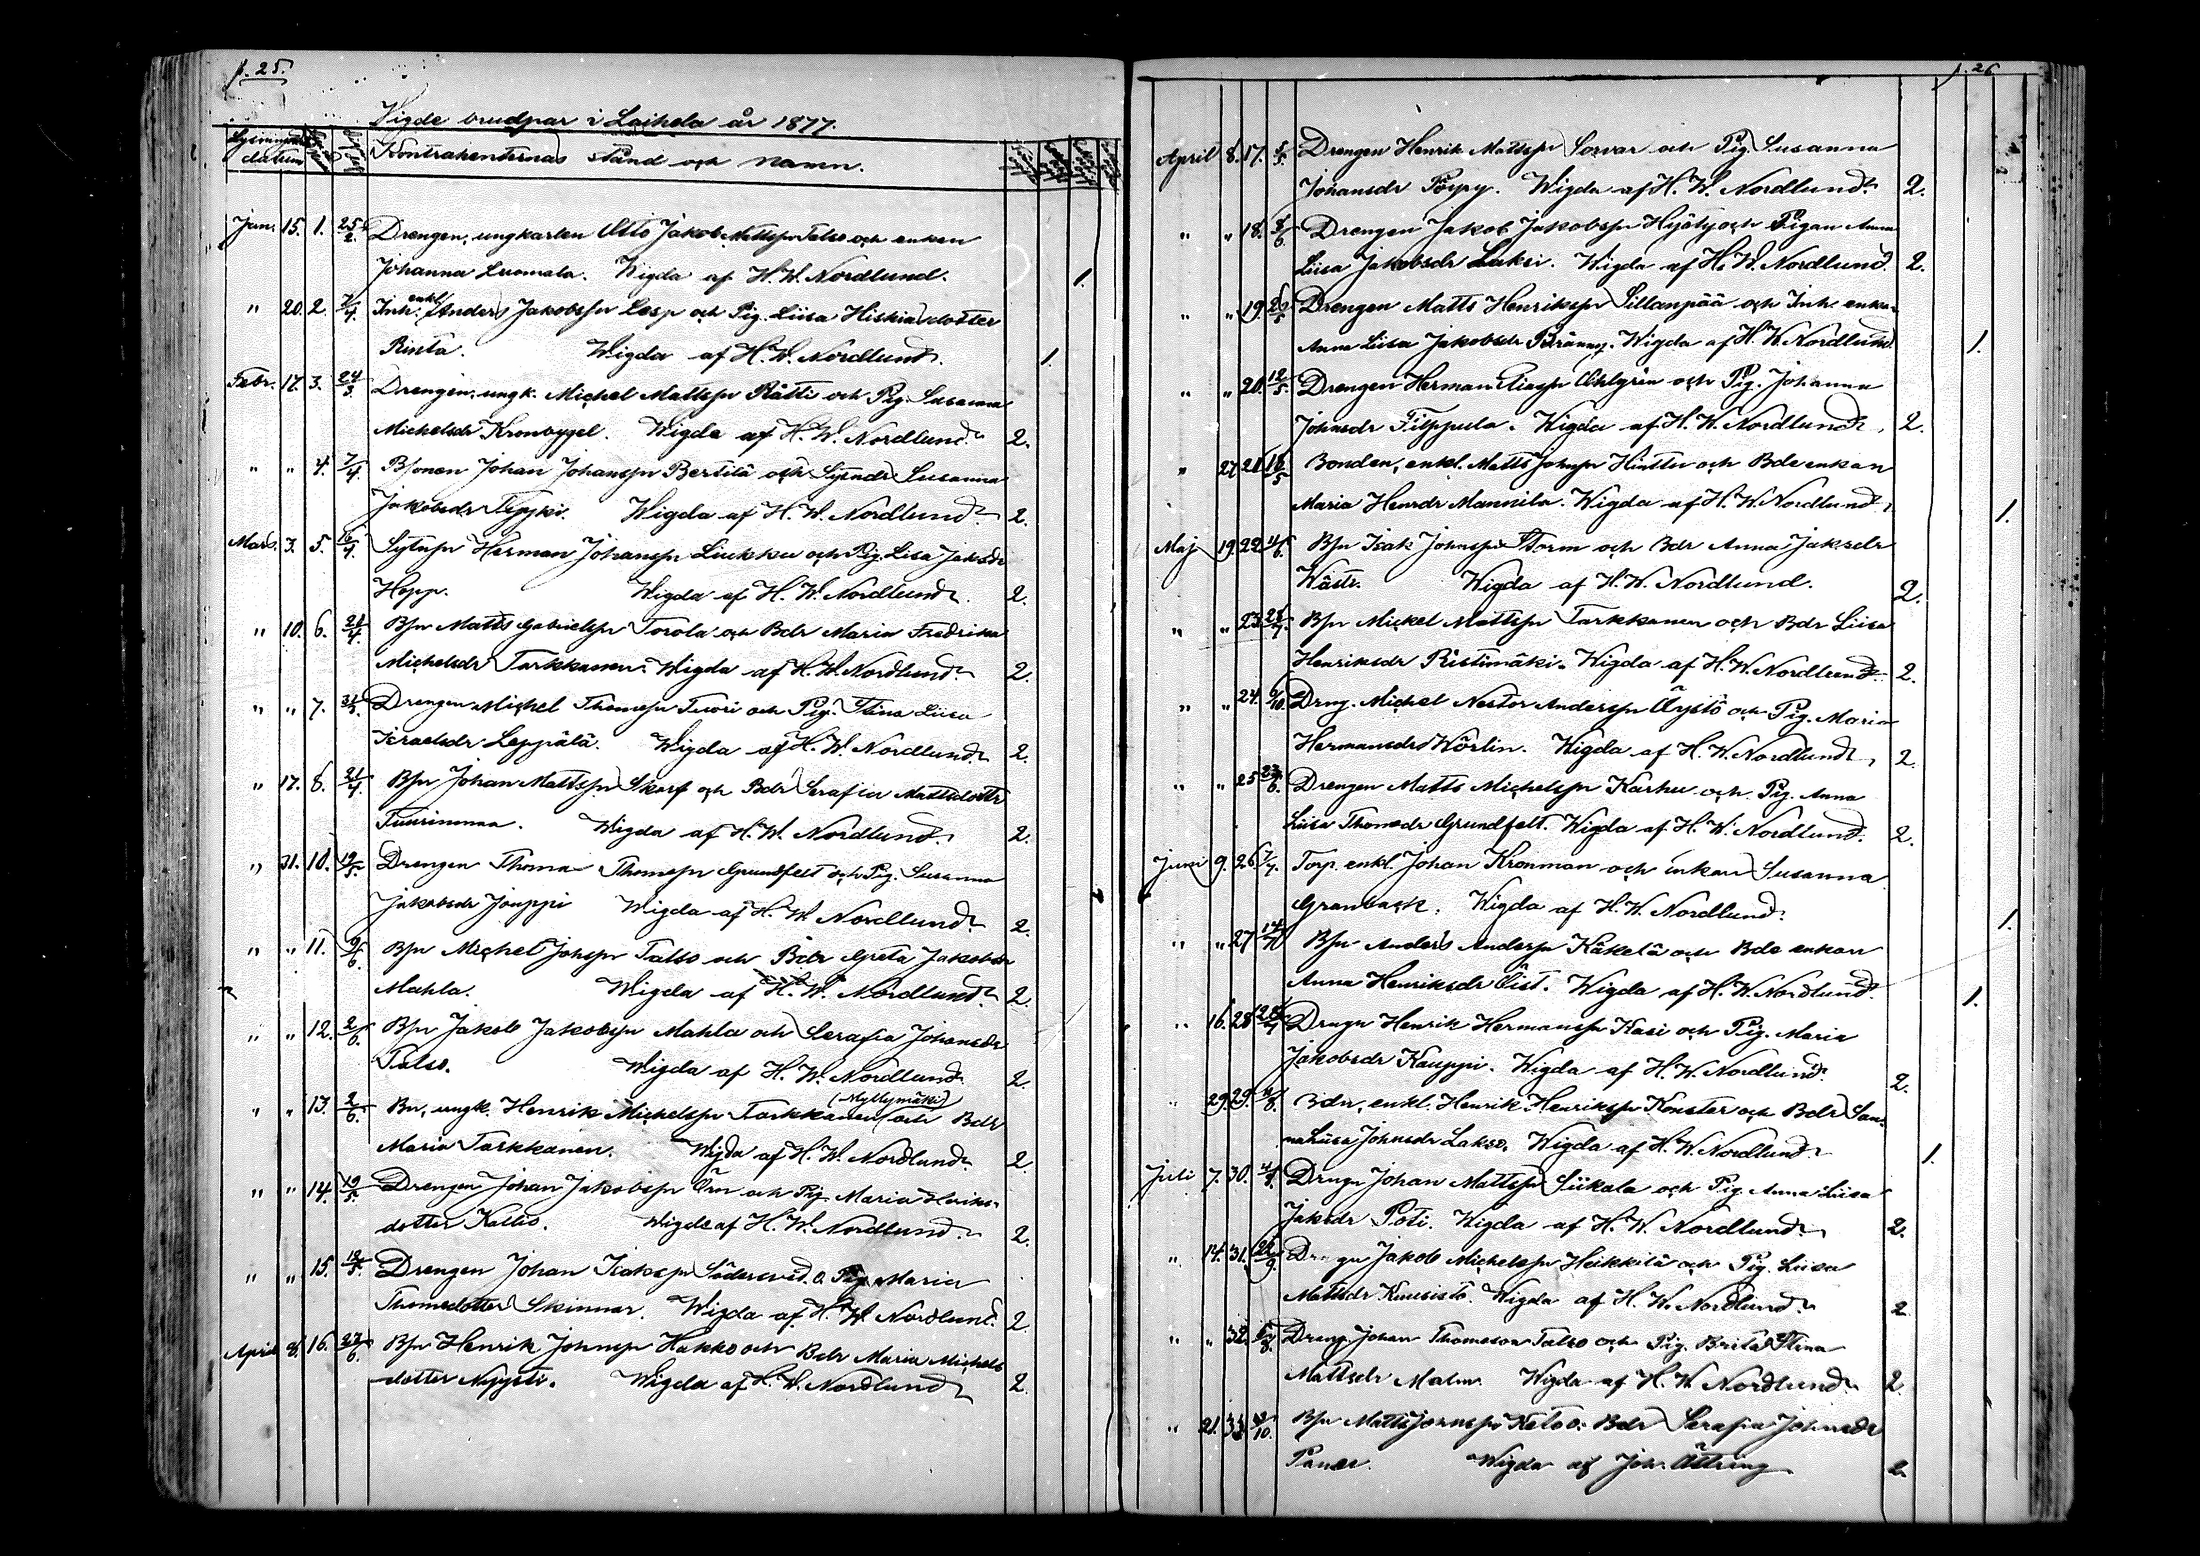 p. 25.
Vigde brudpar i Laihela år 1877.
Lysnings datum
Kontrahenternas stånd och namn.
Jan. 15. 1. 25/2. Drengen, ungkarlen Otto Jakob Mattspn Talso och enkan
Johanna Luomala. Wigda af H. W. Nordlund. 1.
" 20. 2. 7/4. Inh. enkl. Anders Jakobspn Lesp och Pig. Liisa Hiskiasdotter
Rinta. Wigda af H. W. Nordlund. 1.
Febr. 17. 3. 24/3. Drengen, ungk. Michel Mattspn Rätti och Pig. Susanna
Michelsdr Kronbygel. Wigda af H. W. Nordlund. 2.
" " 4. 7/4. Bsonen Johan Johanspn Bertilä och Sytndr Susanna
Jakobsdr Wigda af H. W. Nordlund. 2.
Mars. 3. 5. 16/4. Sytnpn Herman Johanspn Liukku och Pig. Lisa Jaksdr
Hopp. Wigda af H. W. Nordlund. 2.
" 10. 6. 21/4. Bpn Matts Gabrielspn Torola och Bdr Maria Fredrika
Michelsdr Tarkkanen. Wigda af H. W. Nordlund. 2.
" " 7. Drengen Michel Thomspn Tuori och Pig. Stina Liisa
Israelsdr Leppälä. Wigda af H. W. Nordlund. 2.
" 17. 8. 21/4. Bpn Johan Mattspn Skarp och Bdr Serafia Mattsdottr
Tuurinmaa. Wigda af H. W. Nordlund. 2.
" 31. 10. 19/5. Drengen Thomas Thomspn Grundfelt och Pig. Susanna
Jakobsdr Jouppi Wigda af H. W. Nordlund. 2.
" " 11. 9/6. Bpn Michel Johspn Talso och Bdr Greta Jakobsdr
Mahla. Wigda af H. W. Nordlund. 2.
" " 12. 2/6. Bpn Jakob Jakobspn Mahla och Serafia Johansdr
Talso. Wigda af H. W. Nordlund. 2.
" " 13. 2/6. Bn, ungk. Henrik Michelspn Tarkkanen (Myllymäki) och Bdr
Maria Tarkkanen. Wigda af H. W. Nordlund. 2.
" " 14. 19/5. Drengen Johan Jakobspn Örn och Pig Maria Henriks-
dotter Kallio. Wigda af H. W. Nordlund. 2.
" " 15. 12/5. Drengen Johan Isakspn Södersved o. Pig. Maria
Thomsdotter Skinnar. Wigda af H. W. Nordlund. 2.
April 8. 16. 23/6. Bpn Henrik Johnspn Hakko och Bdr Maria Michels
dotter Nyysti. Wigda af H. W. Nordlund. 2.
p. 26
April 8. 17. 5/5. Drengen Henrik Mattspn Sorvar och Pig. Susanna
Johansdr Pörpy. Wigda af H. W. Nordlund. 2.
" " 18. 3/6 Drengen Jakob Jakobspn Hjöty och Pigan Anna
Liisa Jakobsdr Laksi. Wigda af H. W. Nordlund. 2.
" " 19. 26/5 Drengen Matts Henrikspn Sillanpää och Inh. enkan
Anna Liisa Jakobsdr Wigda af H. W. Nordlund. 1.
" " 20. 12/5. Drengen Herman Eliaspn Öhlgrén och Pig. Johanna
Johnsdr Filppula. Wigda af H. W. Nordlund. 2.
" 27. 21. 18/5 Bonden, enkl. Matts Johnspn Hintter och Bde enkan
Maria Henrdr Mannila. Wigda af H. W. Nordlund. 1.
Maj 19. 22. 4/6. Bpn Isak Johnspn Storm och Bdr Anna Jaksdr
Wästr. Wigda af H. W. Nordlund. 2.
" " 23. Bpn Mickel Mattspn Tarkkanen och Bdr Liisa
Henriksdr Ristimäki. Wigda af H. W. Nordlund. 2.
" " 24. 6/10. Dreng. Michel Nestor Anderspn Äystö och Pig. Maria
Hermansdr Wörlin. Wigda af H. W. Nordlund. 2.
" " 25. 23/6. Drengen Matts Michelspn Karhu och Pig. Anna
Liisa Thomsdr Grundfelt. Wigda af H. W. Nordlund. 2.
Juni 9. 26. 7/7. Torp. enkl. Johan Kronman och enkan Susanna
Granback. Wigda af H. W. Nordlund. 1.
" " 27. Bpn Anders Anderspn Käkelä och Bde enkan
Anna Henriksdr Qvist. Wigda af H. W. Nordlund. 1.
" 16. 28. Drngn Henrik Hermanspn Kasi och Pig. Maria
Jakobsdr Kauppi. Wigda af H. W. Nordlund. 2.
" 29. 29. Bdn, enkl. Henrik Henrikspn Konster och Bdr San-
na Liisa Johnsdr Lakso. Wigda af H. W. Nordlund. 1.
Juli 7. 30. Drngn Johan Mattspn Siikala och Pig. Anna Liisa
Jaksdr Poti. Wigda af H. W. Nordlund. 2.
" 14. 31. 22/9 Drengn Jakob Michelspn Heikkilä och Pig. Liisa
Mattsdr Kuusisto. Wigda af H. W. Nordlund. 2
" " 32. Dreng Johan Thomsson Talso och Pig. Brita Stina
Mattsdr Malm. Wigda af H. W. Nordlund. 2.
" 21. 33. Bpn Matts Johnspn Keto o. Bdr Serafia Johnsdr
Paner. Wigda af Joh. Ättring 2.